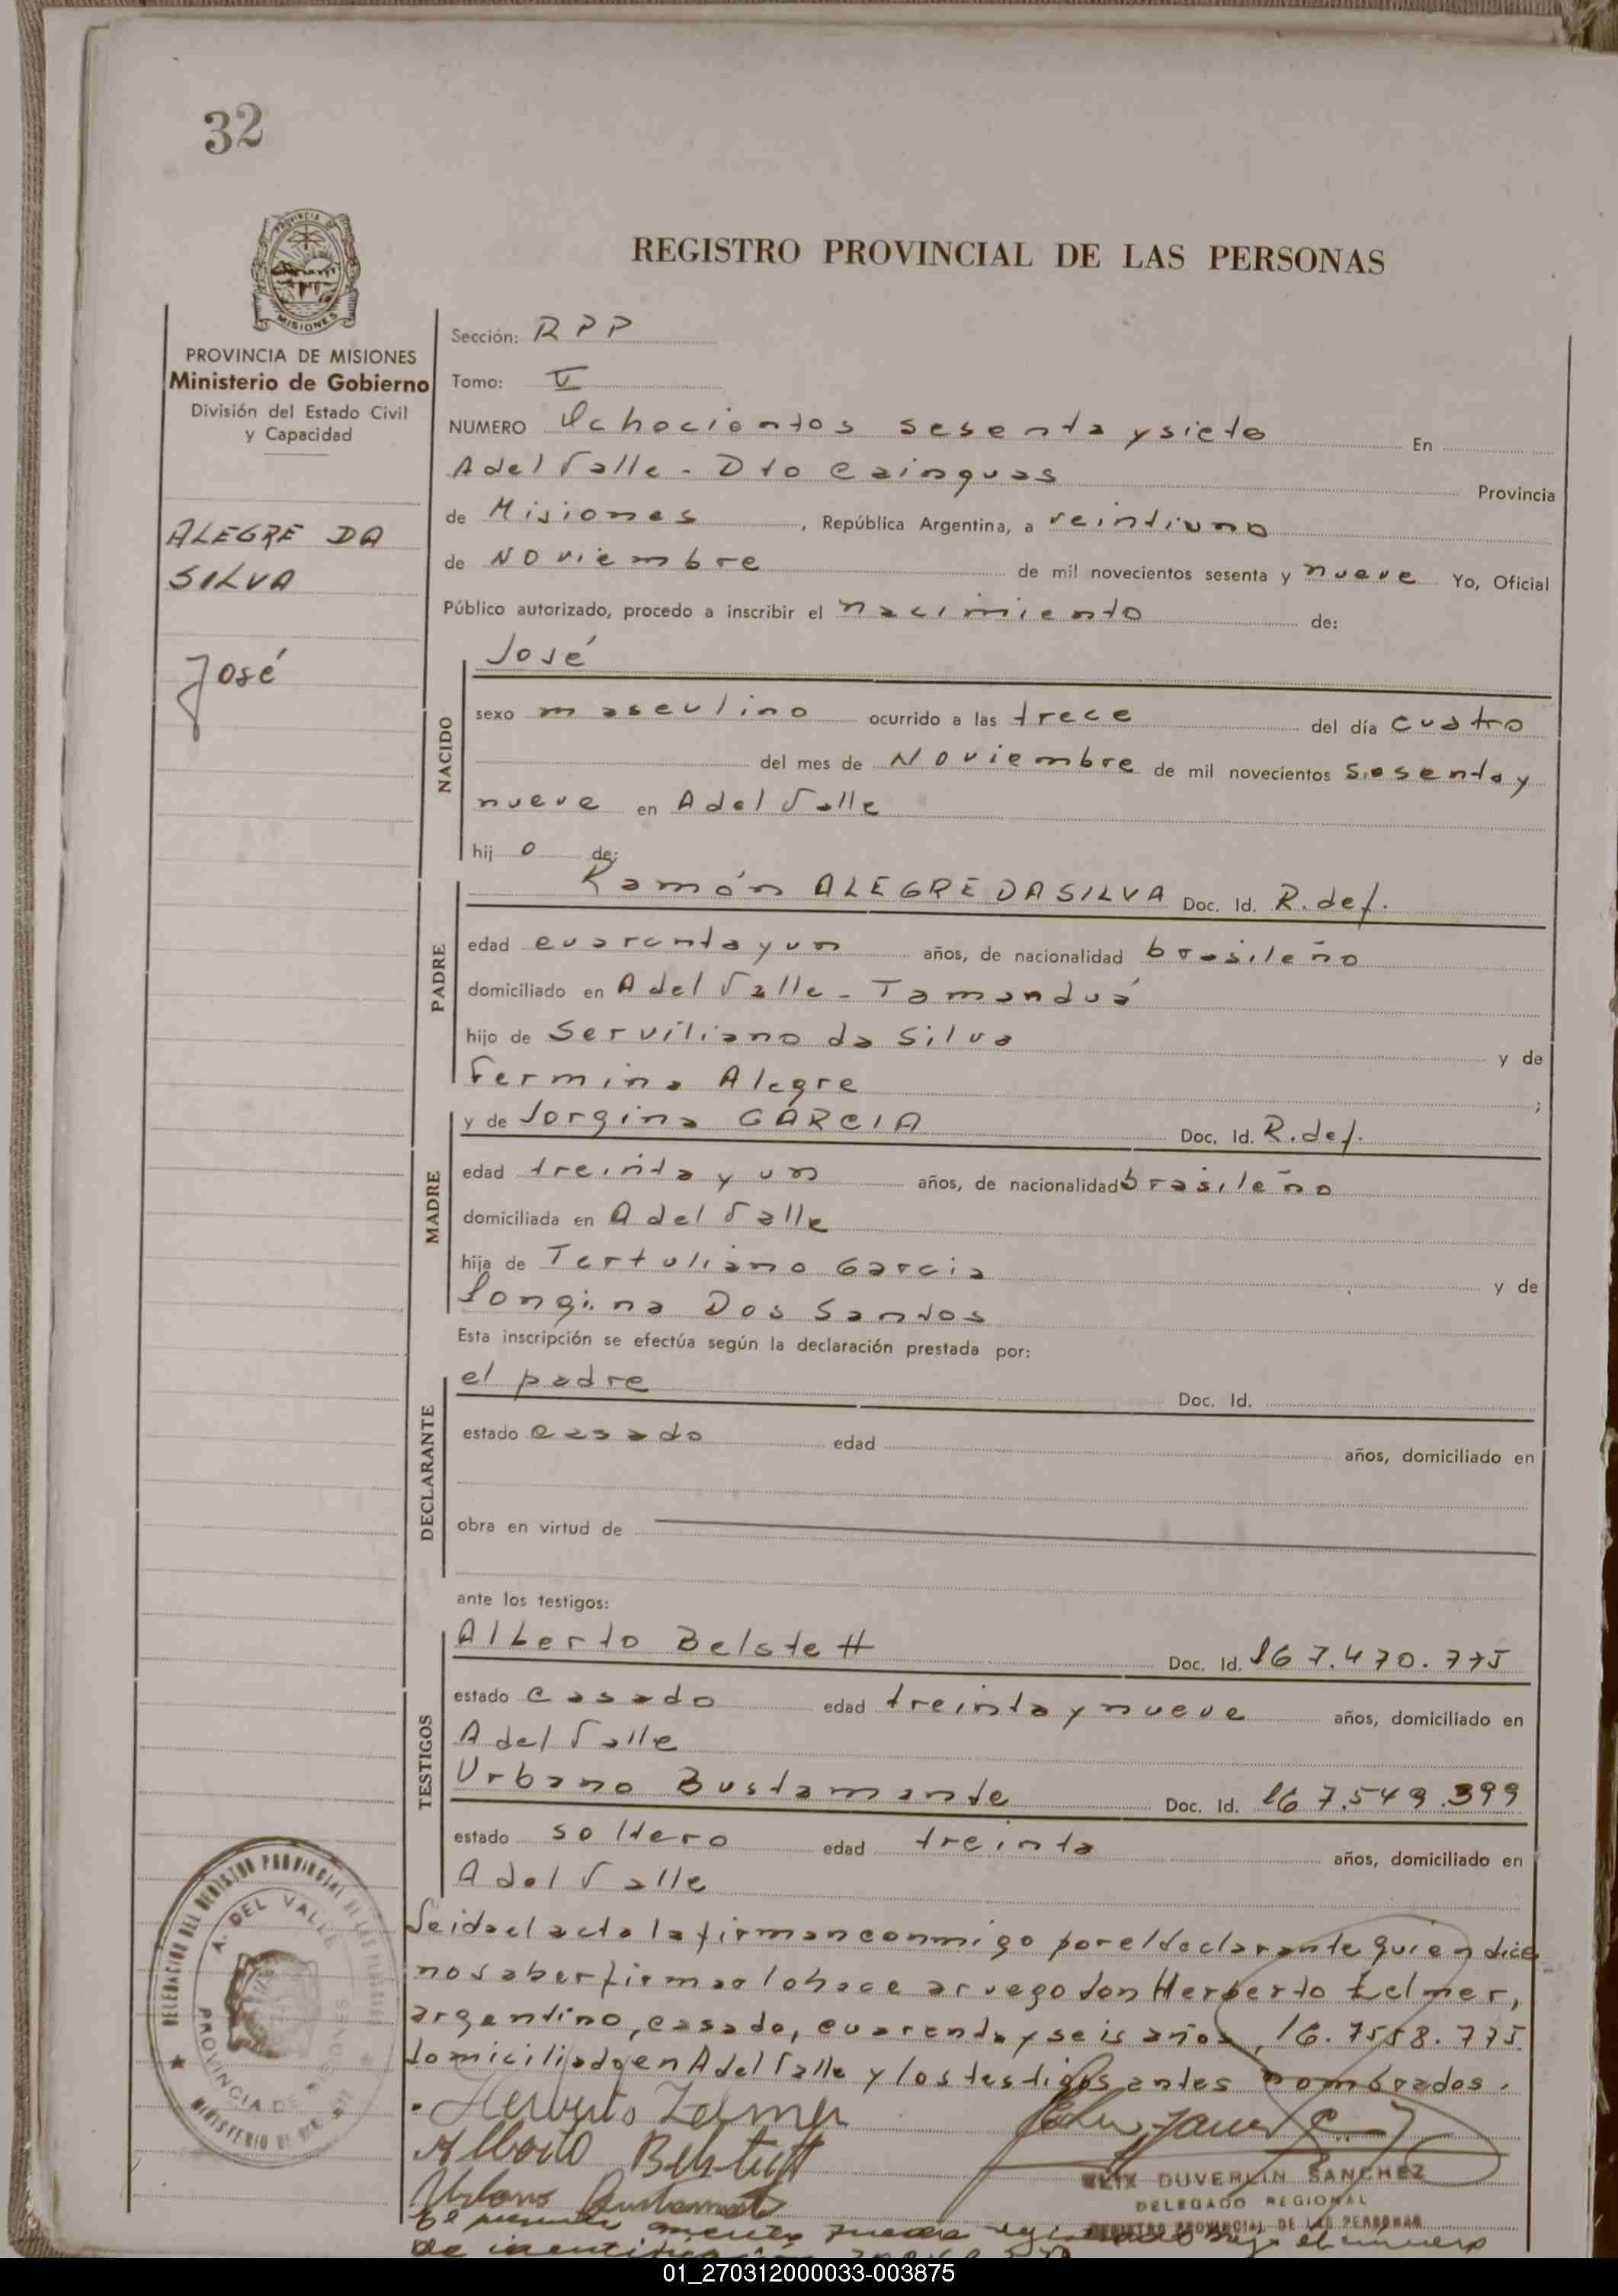 32
REGISTRO PROVINCIAL DE LAS PERSONAS
PROVINCIA DE MISIONES
Ministerio de Gobierno
División del Estado Civil
y Capacidad
ALEGRE DA
SILVA
José
Sección: RPP
Tomo: V
NUMERO Ochocientos sesenta y siete En
A del Valle - Dto Cainguas Provincia
de Misiones, República Argentina, a veintiuno
de Noviembre de mil novecientos sesenta y nueve Yo, Oficial
Público autorizado, procedo a inscribir el nacimiento de:
NACIDO
José
sexo masculino ocurrido a las trece del día cuatro
del mes de Noviembre de mil novecientos sesenta y
nueve en A del Valle
hij o de:
PADRE
Ramón ALEGRE DA SILVA Doc. Id. R. def.
edad cuarenta y un años, de nacionalidad brasileño
domiciliado en A del Valle - Tamanduá
hijo de Serviliano da Silva y de
Fermina Alegre ;
MADRE
y de Jorgina GARCIA Doc. Id. R. def.
edad treinta y un años, de nacionalidad brasileño
domiciliada en A del Valle
hija de Tertuliano Garcia y de
Longina Dos Santos
Esta inscripción se efectúa según la declaración prestada por:
DECLARANTE
el padre Doc. Id.
estado casado edad años, domiciliado en
obra en virtud de
ante los testigos:
TESTIGOS
Alberto Belstett Doc. Id. M67.470.775
estado casado edad treinta y nueve años, domiciliado en
A del Valle
Urbano Bustamante Doc. Id. M67.549.399
estado soltero edad treinta años, domiciliado en
A del Valle
Leida el acta la firman conmigo por el declarante quien dice
no saber firmar lo hace a ruego don Herberto Zelmer,
argentino, casado, cuarenta y seis años, M6.7558.775
domiciliado en A del Valle y los testigos antes nombrados.
Herberto Zelmer
Alberto Belstett
Urbano Bustamante
DELEGACION DEL REGISTRO PROVINCIAL DE LAS PERSONAS
A. DEL VALLE
PROVINCIA DE MISIONES
MINISTERIO DE
FELIX DUVERLIN SANCHEZ
DELEGADO REGIONAL
REGISTRO PROVINCIAL DE LAS PERSONAS
el número
de
01_270312000033-003875